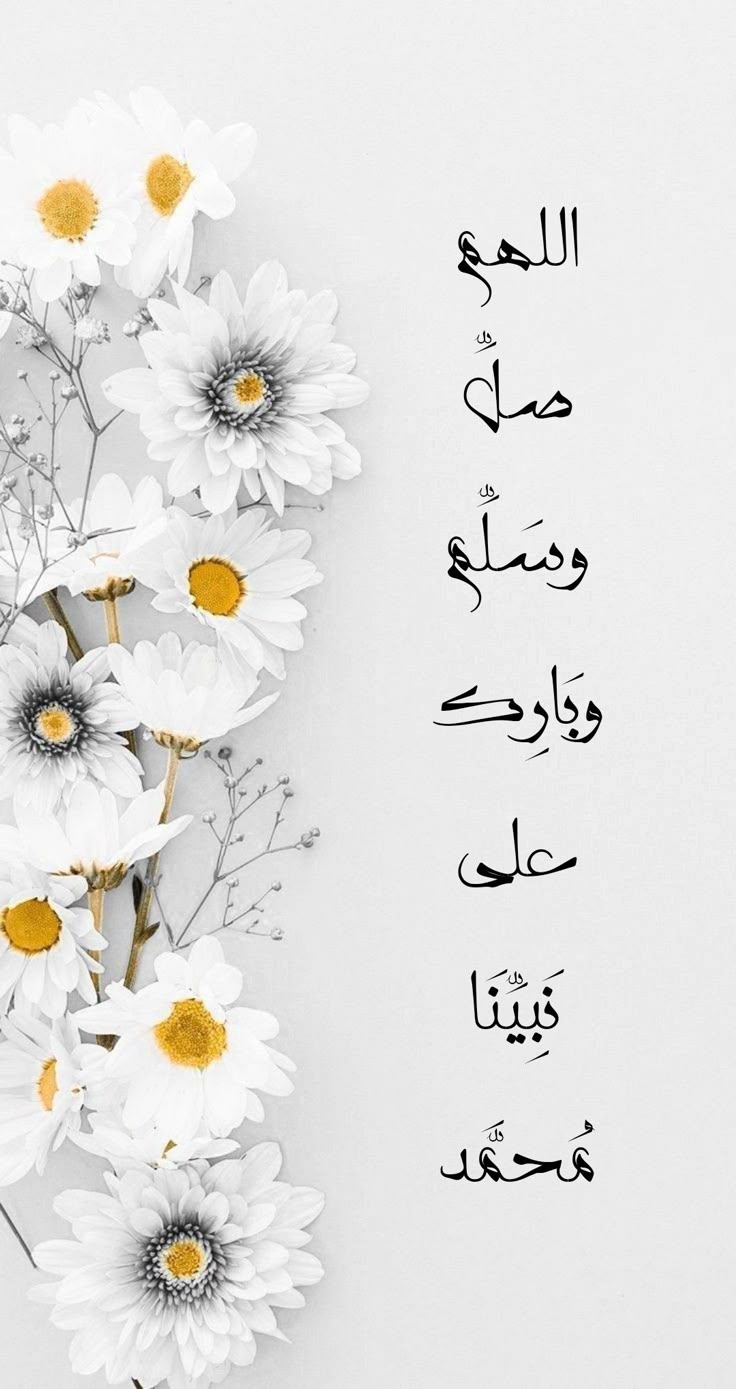 اللهم
صلِّ
وسَلِّم
وبَارِك
على
نَبِيِّنَا
مُحمَّد